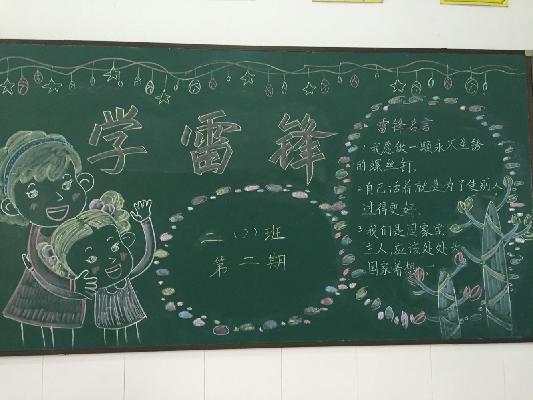 学雷锋
二(2)班
第二期
雷锋名言
1.我愿做一颗永不生锈
的螺丝钉.
2.自己活着就是为了使别人
过得更好.
3.我们是国家的
主人,应该处处为
国家着想